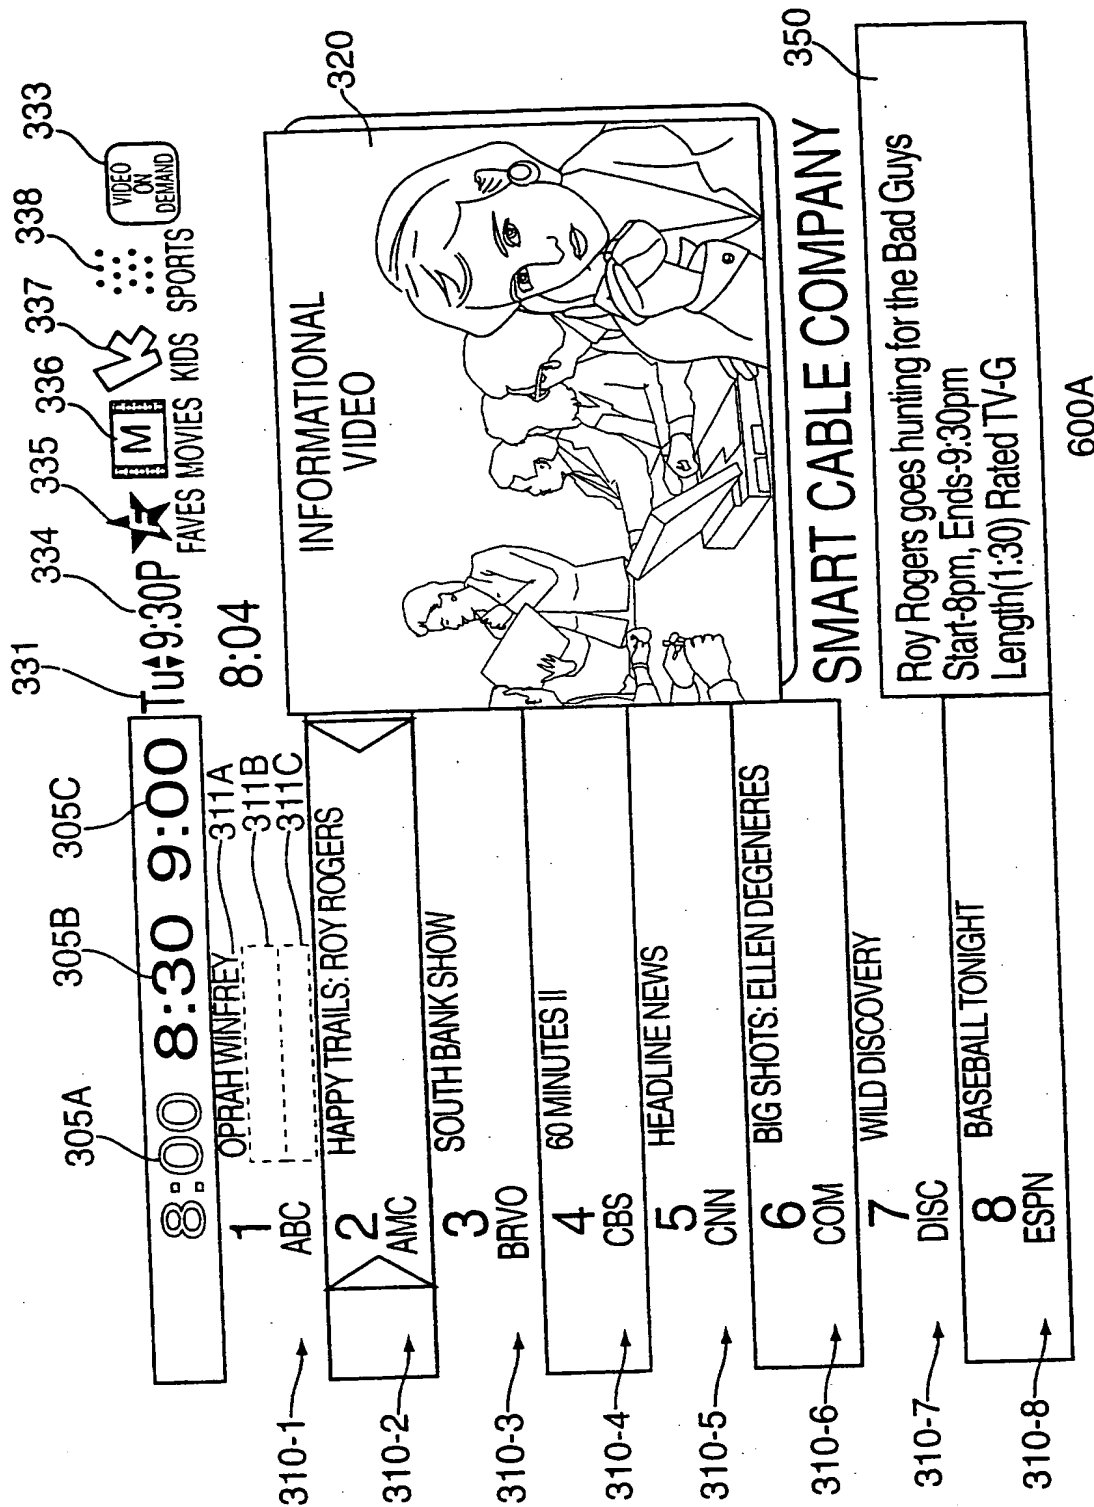 305A 305B 305C 331 334 335 336 337 338 333
8:00 8:30 9:00 Tu 9:30P F M K VIDEO ON DEMAND
FAVES MOVIES KIDS SPORTS
8:04
310-1 1 ABC OPRAH WINFREY 311A
311B
311C
310-2 2 AMC HAPPY TRAILS: ROY ROGERS
310-3 3 BRVO SOUTH BANK SHOW
310-4 4 CBS 60 MINUTES II
310-5 5 CNN HEADLINE NEWS
310-6 6 COM BIG SHOTS: ELLEN DEGENERES
310-7 7 DISC WILD DISCOVERY
310-8 8 ESPN BASEBALL TONIGHT
INFORMATIONAL
VIDEO
320
SMART CABLE COMPANY
350
Roy Rogers goes hunting for the Bad Guys
Start-8pm, Ends-9:30pm
Length(1:30) Rated TV-G
600A